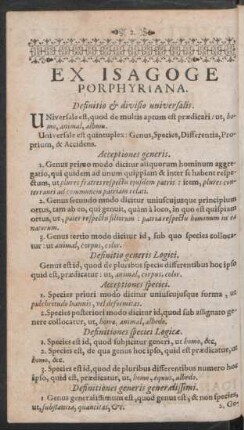 2.
EX ISAGOGE
PORPHYRIANA.
Definitio & divisio universalis.
UNiversale est, quod de multis aptum est prædicari: ut, ho-
mo, animal, album.
Universale est quintuplex: Genus, Species, Differentia, Pro-
prium, & Accidens.
Acceptiones generis.
1. Genus primo modo dicitur aliquorum hominum aggre-
gatio, qui quidem ad unum quippiam & inter se habent respe-
ctum, ut plures fratres respectu ejusdem patris: item, plures
2. Genus secundo modo dicitur uniuscujusque principium
ortus, tam ab eo, qui genuit, quàm à loco, in quo est quispiam
ortus, ut, pater respectu filiorum: patria respectu hominum in ea
natorum.
3. Genus tertio modo dicitur id, sub quo species colloca-
tur: ut animal, corpus, color.
Definitio generis Logici.
Genus est id, quod de pluribus specie differentibus hoc ipso
quid est, prædicatur: ut, animal, corpus, color.
Acceptiones speciei.
1. Species priori modo dicitur uniuscujusque forma, ut
pulchritudo hominis, vel deformitas.
2. Species posteriori modo dicitur id, quod sub assignato ge-
nere collocatur, ut, homo, animal, albedo.
Definitiones speciei Logicæ.
1. Species est id, quod subjicitur generi, ut homo, &c,
2. Species est, de qua genus hoc ipso, quid est prædicatur, ut
homo, &c.
3. Species est id, quod de pluribus differentibus numero hoc
ipso, quid est, prædicatur, ut, homo, equus, albedo.
Definitiones generis generalissimi.
1. Genus generalissimum est, quod genus est, & non species,
ut, substantia, quantitas, &c.
2. Ge-